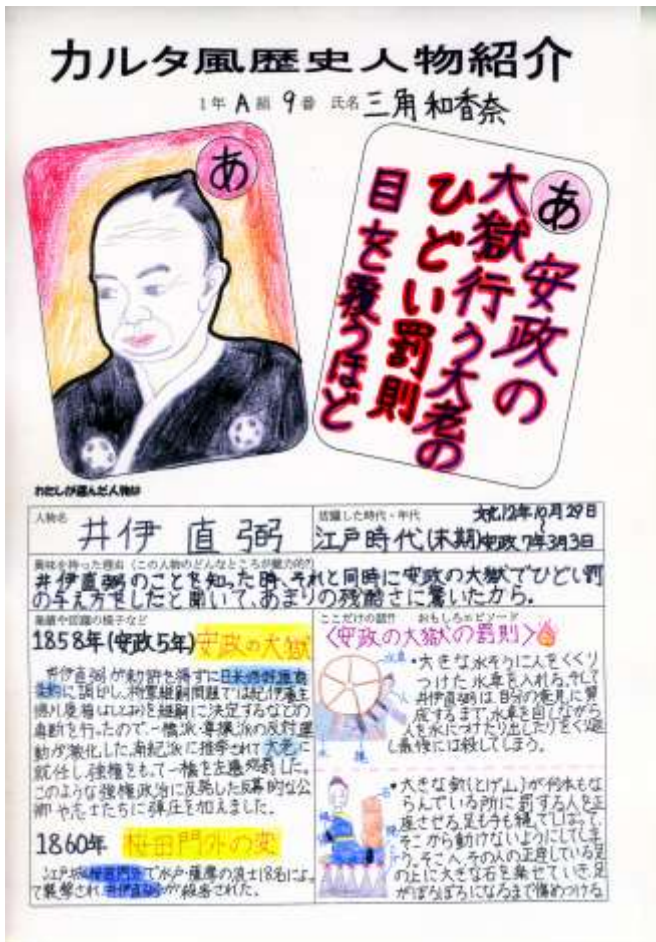 カルタ風歴史人物紹介
1年 A組 9番 氏名 三角 和香奈
あ
あ
安政の
大獄行う大老の
ひどい罰則
目を覆うほど
わたしが選んだ人物は
人物名
井伊 直弼
活躍した時代・年代
江戸時代(末期)
文化12年10月29日
~
安政7年3月3日
興味を持った理由(この人物のどんなところが魅力的?)
井伊直弼のことを知った時、それと同時に安政の大獄でひどい罰
の与え方をしたと聞いて、あまりの残酷さに驚いたから。
業績や活躍の様子など
1858年(安政5年) 安政の大獄
井伊直弼が勅許を得ずに日米修好通商
条約に調印し、将軍継嗣問題では紀伊藩主
徳川慶福(よしとみ)を継嗣に決定するなどの
専断を行ったので、一橋派・尊攘派の反対運
動が激化した。南紀派に推挙されて大老に
就任し、強権をもって一橋を左遷処罰した。
このような強権政治に反発した反幕的な公
卿や志士たちに弾圧を加えました。
1860年 桜田門外の変
江戸城桜田門外で水戸・薩摩の浪士18名によっ
て襲撃され井伊直弼が殺害された。
ここだけの話!! おもしろエピソード
〈安政の大獄の罰則〉
水車
人
水
・大きな水そうに人をくくり
つけた水車を入れる。そして
井伊直弼は自分の意見に賛
成するまで、水車を回しながら
人を水につけたり出したりをくり返
し最後には殺してしまう。
石
・大きな針(とげ山)が何本もな
らんでいる所に罰する人を正
座させる。足も手も縄でしばって、
そこから動けないようにしてしま
う。そこへ、その人の正座している足
の上に大きな石を乗せていき、足
がぼろぼろになるまで傷めつける